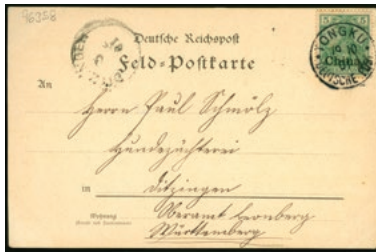 96358
Deutsche Reichspost
Feld-Postkarte
5 5
China
TONGKU
19 10
DEUTSCHE
An
Herrn Paul Schmölz
Hundezüchterei
in Ditzingen
Wohnung
Oberamt Leonberg
Württemberg